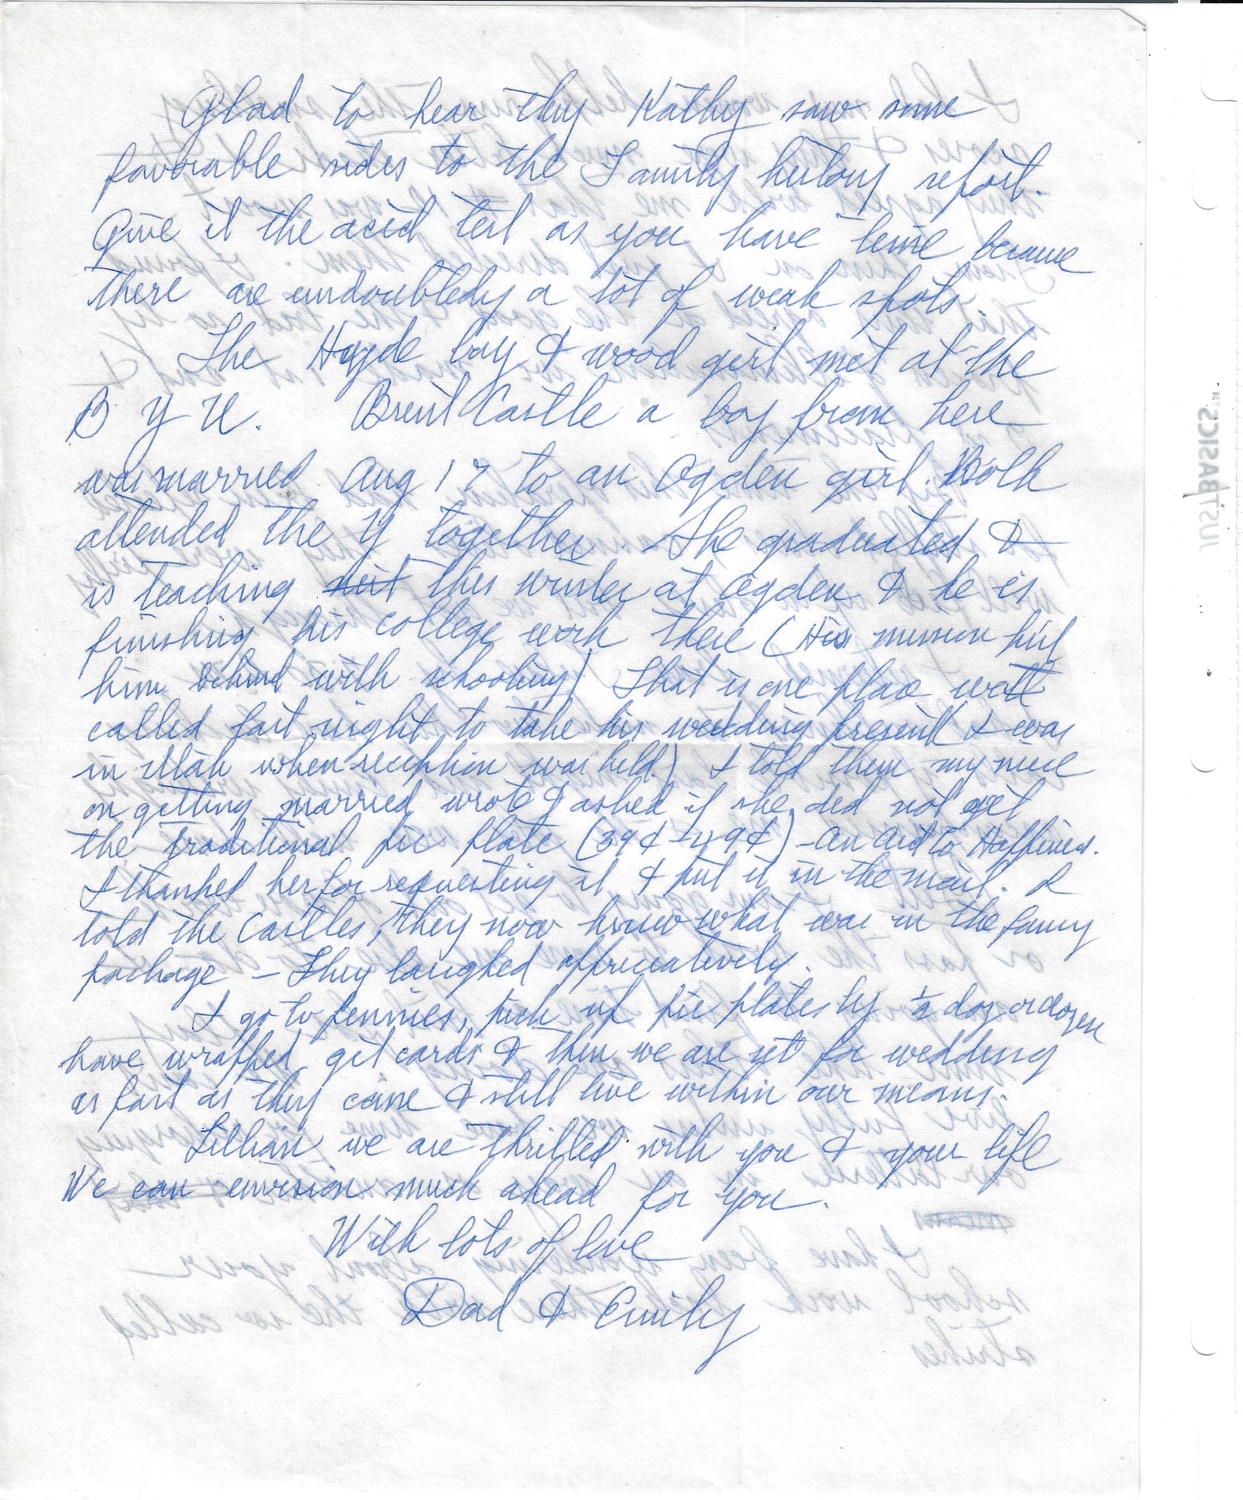 Glad to hear they Kathy saw some
favorable sides to the Family history report.
Give it the acid test as you have time because
there are undoubtedly a lot of weak spots.
The Hyde boy & wood girl met at the
B Y U. Brent Castle a boy from here
was married Aug 17 to an Ogden girl. Both
attended the Y together - She graduated &
is teaching this winter at Ogden & he is
finishing his college work there (His mission put
him behind with schooling) That is one place we
called last night to take his wedding present & was
in Utah when reception was held) I told them my niece
on getting married wrote & asked if she did not get
the traditional pie plate (39¢ - 49¢) - an aid to Happiness.
I thanked her for requesting it & put it in the mail. I
told the Castles, they now know what was in the fancy
package - They laughed appreciatively.
I go to pennies, pick up pie plates by ½ doz or dozen
have wrapped get cards & then we are set for wedding
as fast as they come & still live within our means.
Lillian we are thrilled with you & your life
We can envision much ahead for you.
With lots of love
Dad & Emily
JUST BASICS